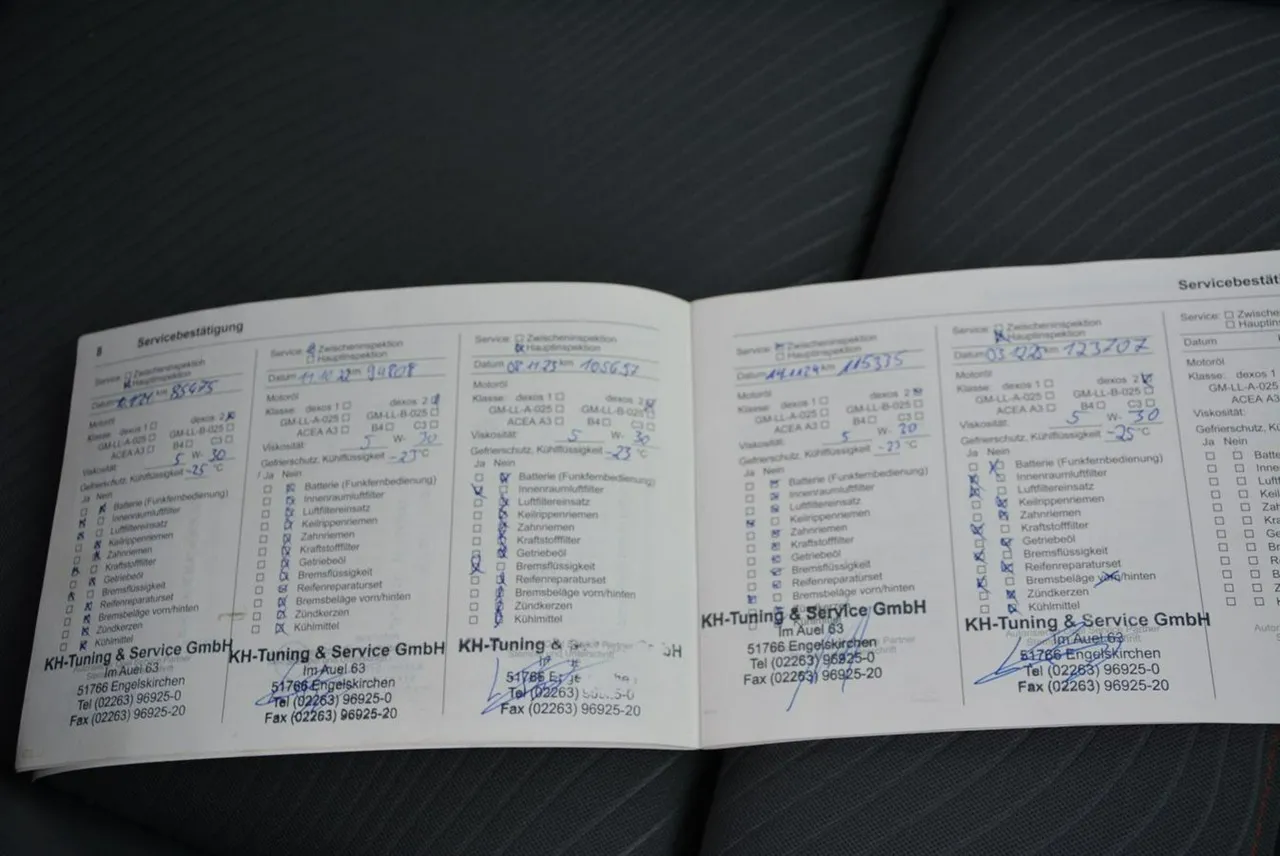 8 Servicebestätigung
Service: Zwischeninspektion
Hauptinspektion
Datum km 85675
Motoröl
Klasse: dexos 1 dexos 2
GM-LL-A-025 GM-LL-B-025
ACEA A3 B4 C3
Viskosität: 5 W- 30
Gefrierschutz, Kühlflüssigkeit -25 °C
Ja Nein
Batterie (Funkfernbedienung)
Innenraumluftfilter
Luftfiltereinsatz
Keilrippenriemen
Zahnriemen
Kraftstofffilter
Getriebeöl
Bremsflüssigkeit
Reifenreparaturset
Bremsbeläge vorn/hinten
Zündkerzen
Kühlmittel
KH-Tuning & Service GmbH
Im Auel 63
51766 Engelskirchen
Tel (02263) 96925-0
Fax (02263) 96925-20
Service: Zwischeninspektion
Hauptinspektion
Datum 11.10.22 km 94808
Motoröl
Klasse: dexos 1 dexos 2
GM-LL-A-025 GM-LL-B-025
ACEA A3 B4 C3
Viskosität: 5 W- 30
Gefrierschutz, Kühlflüssigkeit -23 °C
Ja Nein
Batterie (Funkfernbedienung)
Innenraumluftfilter
Luftfiltereinsatz
Keilrippenriemen
Zahnriemen
Kraftstofffilter
Getriebeöl
Bremsflüssigkeit
Reifenreparaturset
Bremsbeläge vorn/hinten
Zündkerzen
Kühlmittel
KH-Tuning & Service GmbH
Im Auel 63
51766 Engelskirchen
Tel (02263) 96925-0
Fax (02263) 96925-20
Service: Zwischeninspektion
Hauptinspektion
Datum 08.11.23 km 105657
Motoröl
Klasse: dexos 1 dexos 2
GM-LL-A-025 GM-LL-B-025
ACEA A3 B4 C3
Viskosität: 5 W- 30
Gefrierschutz, Kühlflüssigkeit -23 °C
Ja Nein
Batterie (Funkfernbedienung)
Innenraumluftfilter
Luftfiltereinsatz
Keilrippenriemen
Zahnriemen
Kraftstofffilter
Getriebeöl
Bremsflüssigkeit
Reifenreparaturset
Bremsbeläge vorn/hinten
Zündkerzen
Kühlmittel
KH-Tuning &
51766
Tel (02263)
Fax (02263) 96925-20
Servicebestäti
Service: Zwischeninspektion
Hauptinspektion
Datum 14.11.24 km 115335
Motoröl
Klasse: dexos 1 dexos 2
GM-LL-A-025 GM-LL-B-025
ACEA A3 B4 C3
Viskosität: 5 W- 20
Gefrierschutz, Kühlflüssigkeit -23 °C
Ja Nein
Batterie (Funkfernbedienung)
Innenraumluftfilter
Luftfiltereinsatz
Keilrippenriemen
Zahnriemen
Kraftstofffilter
Getriebeöl
Bremsflüssigkeit
Reifenreparaturset
Bremsbeläge vorn/hinten
Zündkerzen
KH-Tuning & Service GmbH
Im Auel 63
51766 Engelskirchen
Tel (02263) 96925-0
Fax (02263) 96925-20
Service: Zwischeninspektion
Hauptinspektion
Datum 03.12.25 km 123707
Motoröl
Klasse: dexos 1 dexos 2
GM-LL-A-025 GM-LL-B-025
ACEA A3 B4 C3
Viskosität: 5 W- 30
Gefrierschutz, Kühlflüssigkeit -25 °C
Ja Nein
Batterie (Funkfernbedienung)
Innenraumluftfilter
Luftfiltereinsatz
Keilrippenriemen
Zahnriemen
Kraftstofffilter
Getriebeöl
Bremsflüssigkeit
Reifenreparaturset
Bremsbeläge vorn/hinten
Zündkerzen
Kühlmittel
KH-Tuning & Service GmbH
Im Auel 63
51766 Engelskirchen
Tel (02263) 96925-0
Fax (02263) 96925-20
Service: Zwische
Hauptins
Datum
Motoröl
Klasse: dexos 1
GM-LL-A-025
ACEA A3
Viskosität:
Gefrierschutz, Kühl
Ja Nein
Batte
Inne
Luft
Kei
Zah
Kra
Ge
Br
R
B
Z
K